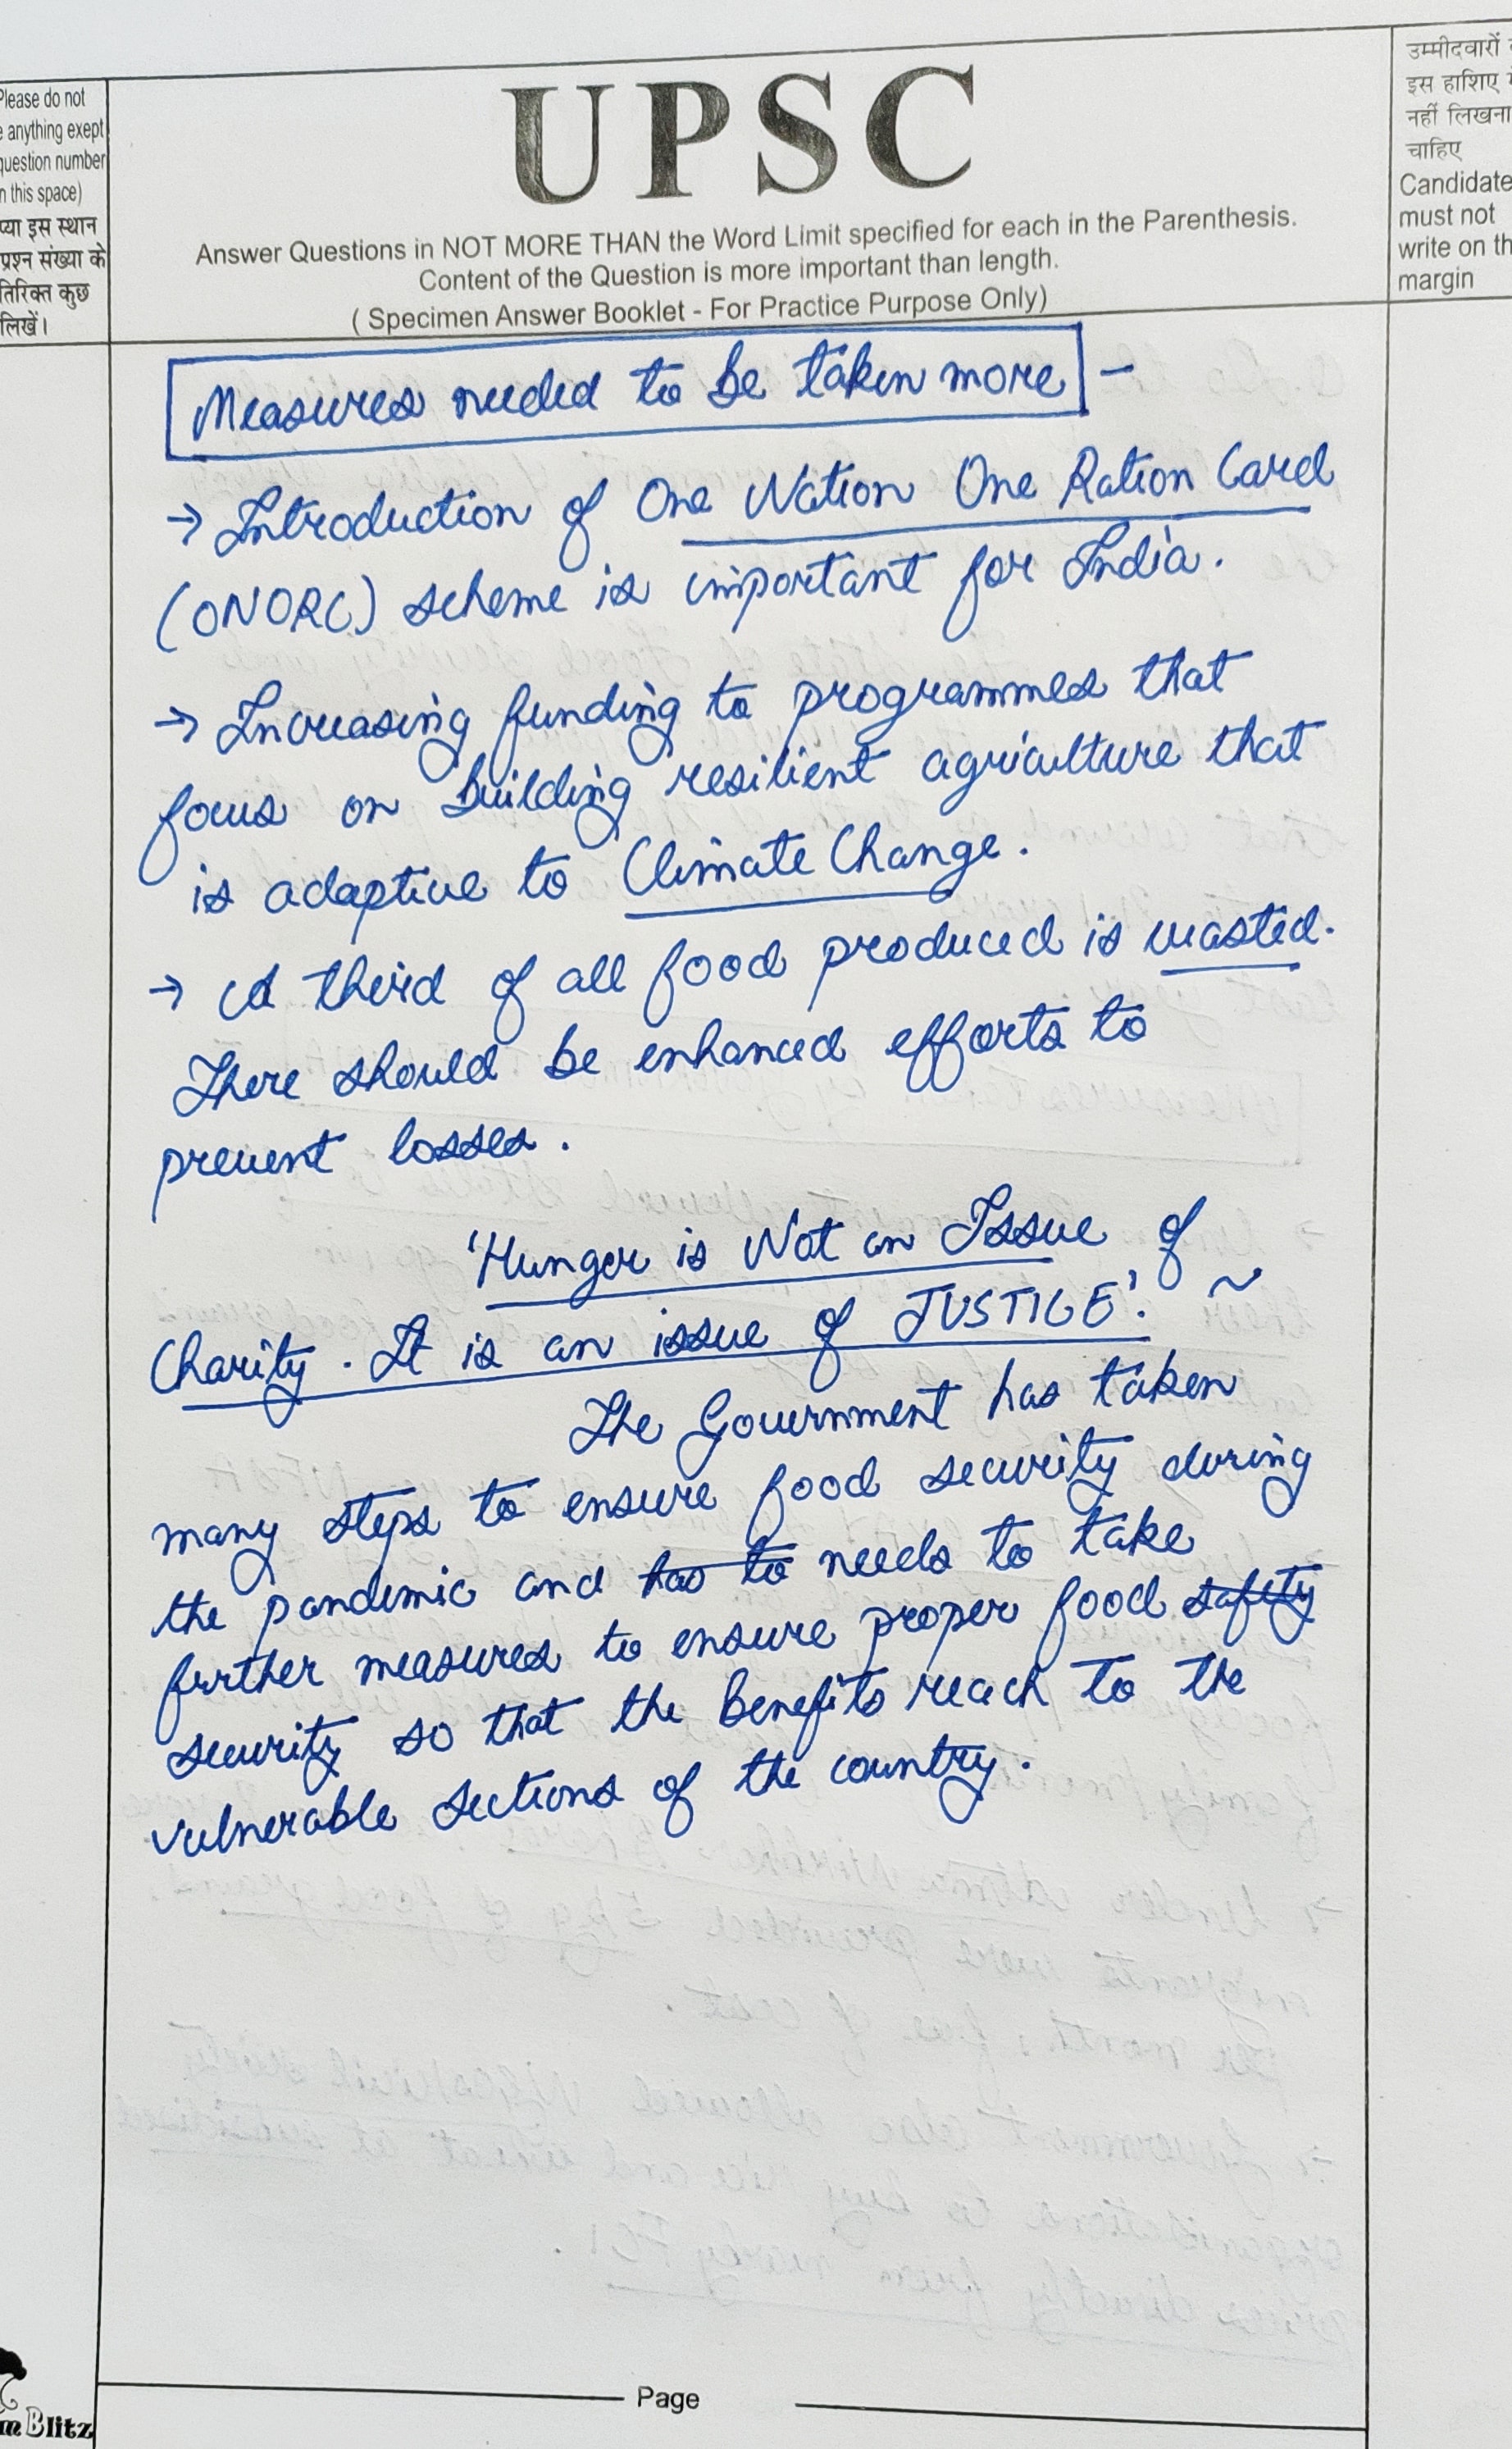 Please do not
anything exept
question number
n this space)
प्या इस स्थान
प्रश्न संख्या के
तिरिक्त कुछ
लिखें।
UPSC
Answer Questions in NOT MORE THAN the Word Limit specified for each in the Parenthesis.
Content of the Question is more important than length.
( Specimen Answer Booklet - For Practice Purpose Only)
उम्मीदवारों
इस हाशिए
नहीं लिखना
चाहिए
Candidate
must not
write on th
margin
Measures needed to be taken more -
→ Introduction of One Nation One Ration Card
(ONORC) scheme is important for India.
→ Increasing funding to programmes that
focus on building resilient agriculture that
is adaptive to Climate Change.
→ A third of all food produced is wasted.
There should be enhanced efforts to
prevent losses.
'Hunger is Not an Issue of
Charity. It is an issue of JUSTICE'. ~
The Government has taken
many steps to ensure food security during
the pandemic and has to needs to take
further measures to ensure proper food safety
security so that the benefits reach to the
vulnerable sections of the country.
Page
Blitz